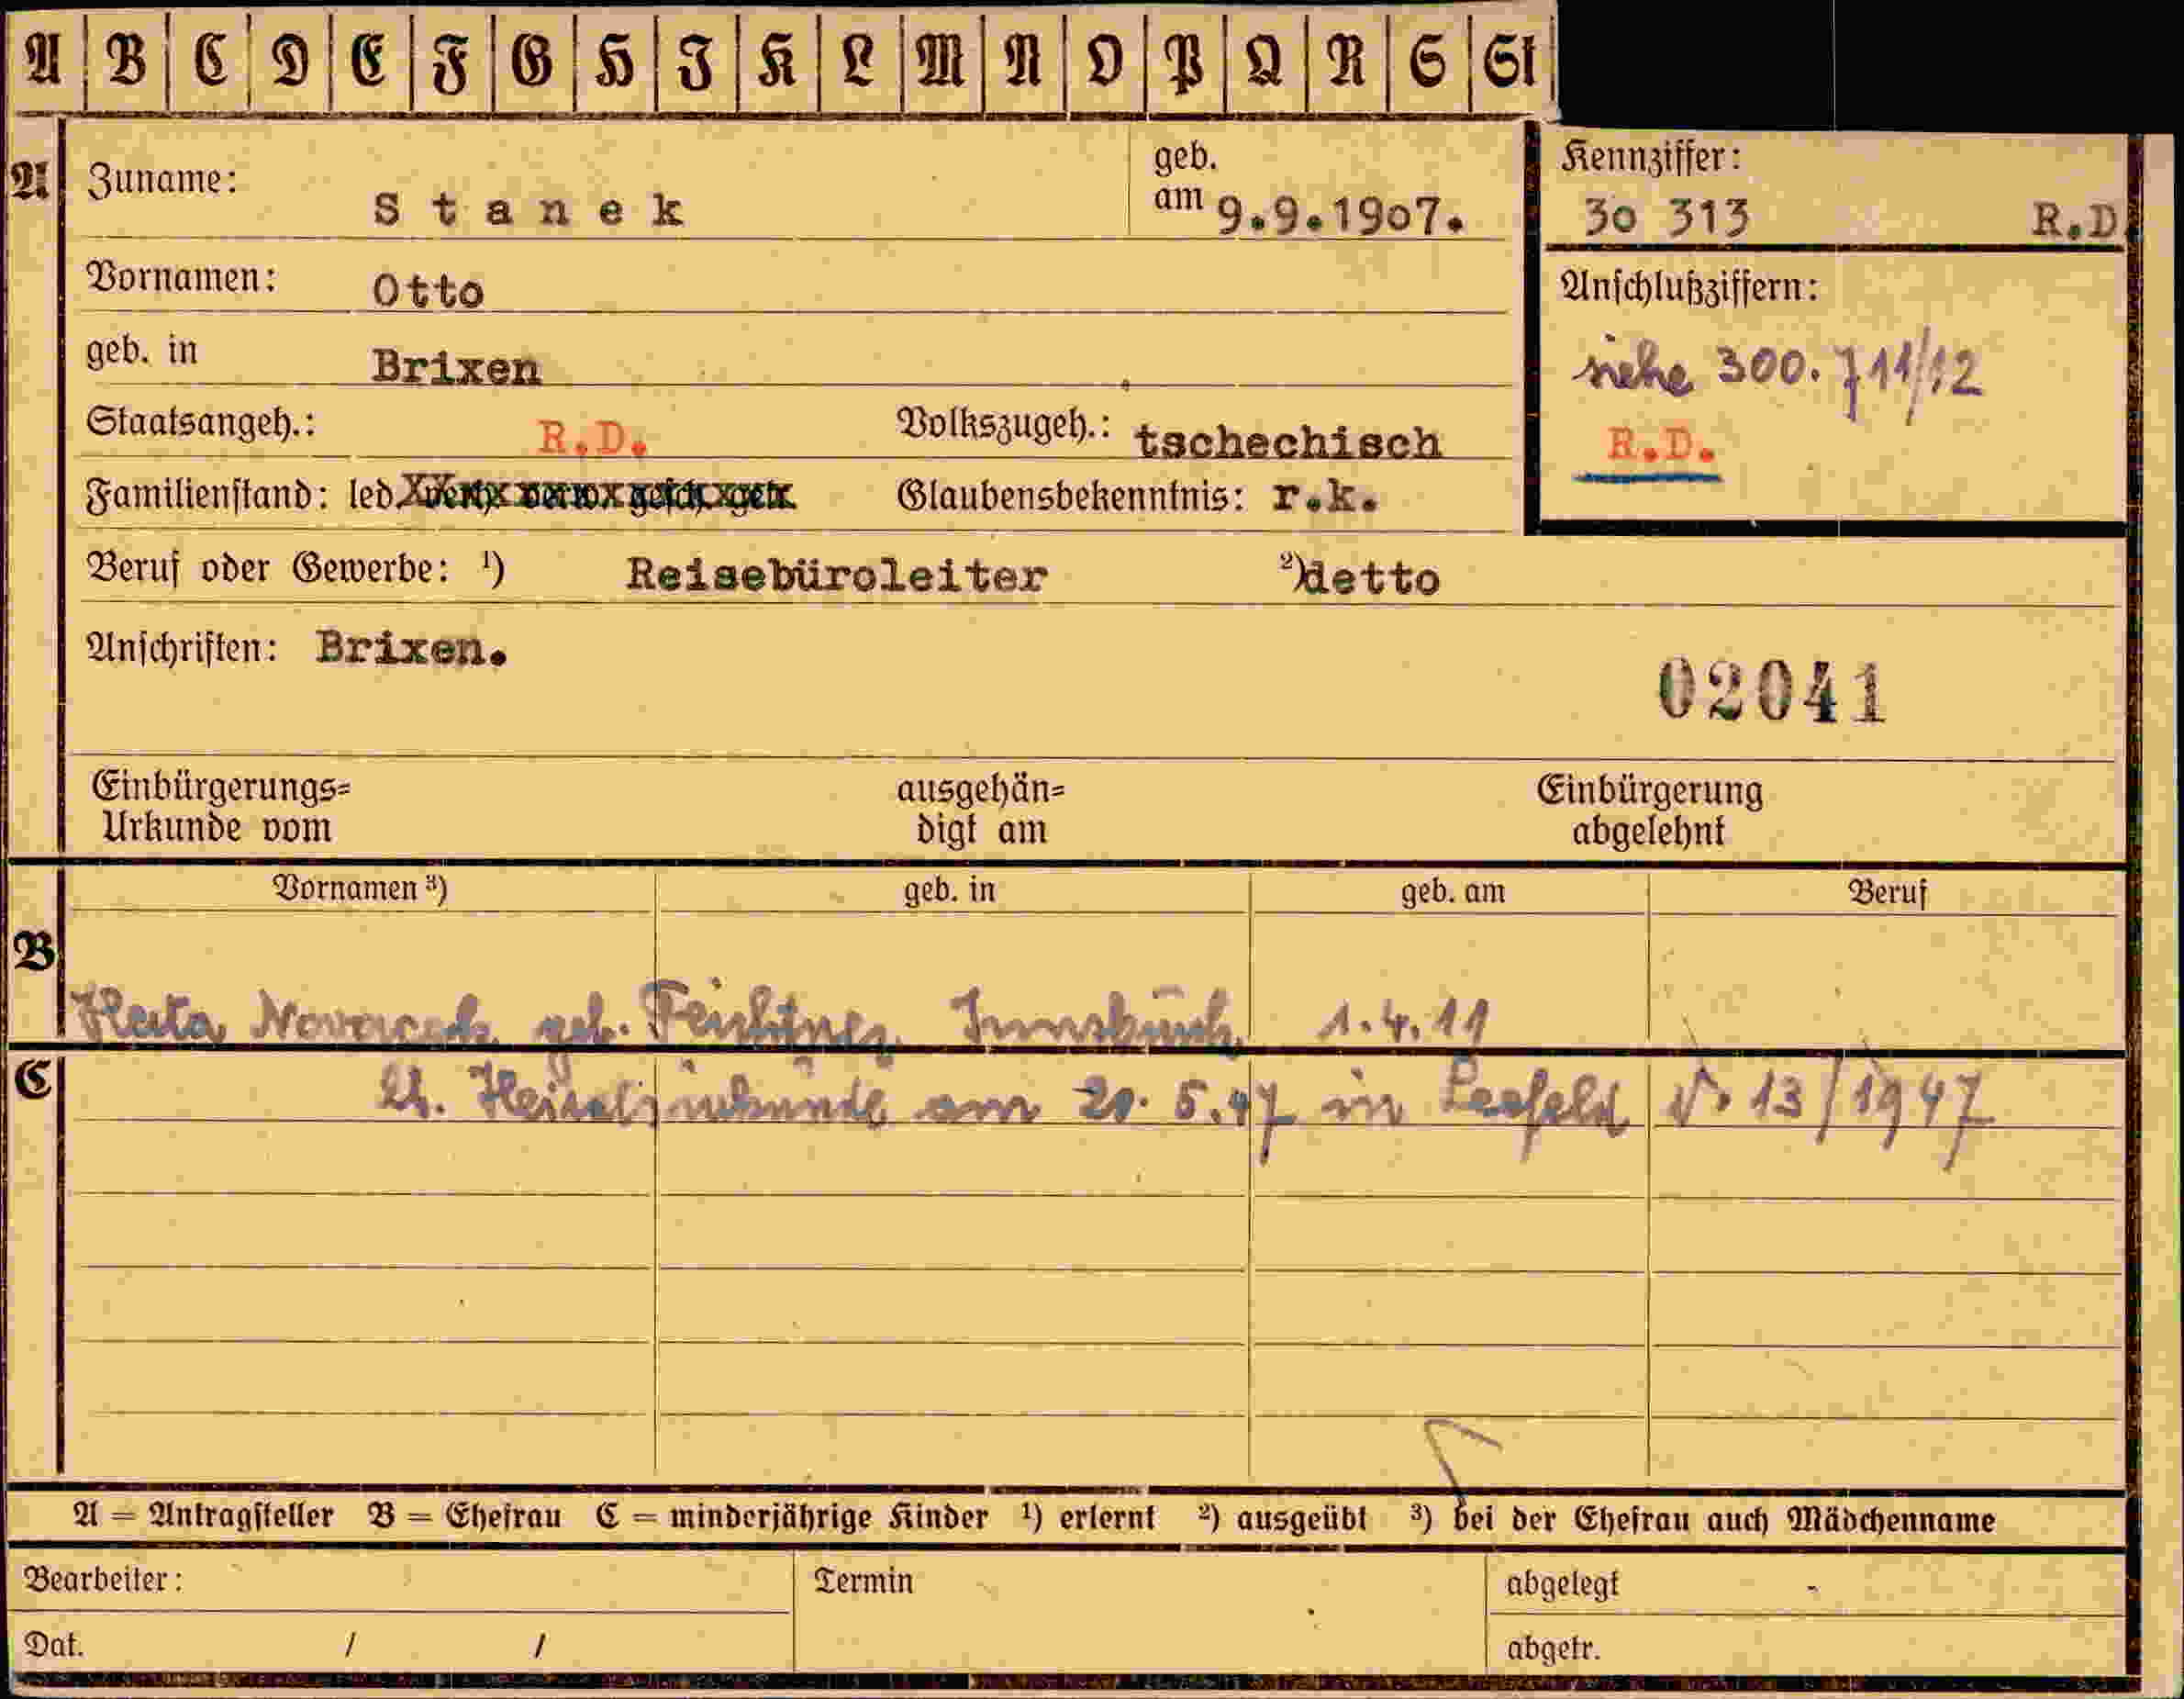 A B C D E F G H I K L M N O P Q R S St
A Zuname: Stanek geb. am 9.9.1907.
Kennziffer: 30 313 R.D.
Vornamen: Otto
Anschlußziffern:
geb. in Brixen
siehe 300.711/12
Staatsangeh.: R.D. Volkszugeh.: tschechisch
R.D.
Familienstand: led. verh. verw. gesch. getr. Glaubensbekenntnis: r.k.
Beruf oder Gewerbe: 1) Reisebüroleiter 2) detto
Anschriften: Brixen.
02041
Einbürgerungs= Urkunde vom
ausgehän= digt am
Einbürgerung abgelehnt
Vornamen 3) geb. in geb. am Beruf
B
geb. Innsbruck 1.4.11
C
lt. Heiratsurkunde am 20.5.47 in Seefeld No 13/1947
A = Antragsteller B = Ehefrau C = minderjährige Kinder 1) erlernt 2) ausgeübt 3) bei der Ehefrau auch Mädchenname
Bearbeiter: Termin abgelegt
Dat. / / abgetr.